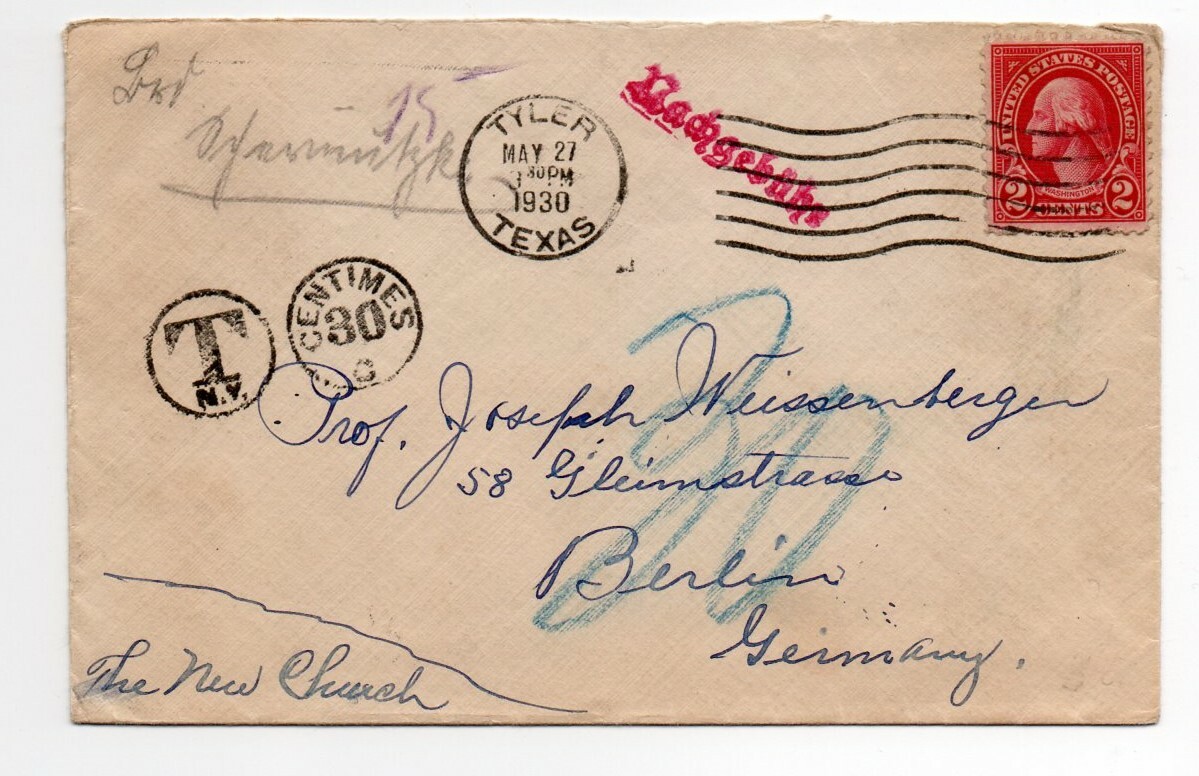 15
TYLER
MAY 27
30 PM
1930
TEXAS
Nachgebühr
UNITED STATES POSTAGE
WASHINGTON
2 CENTS 2
T
N.Y.
CENTIMES
30
30
Prof. Joseph Weissenberger
58 Gleimstrasse
Berlin
Germany.
The New Church